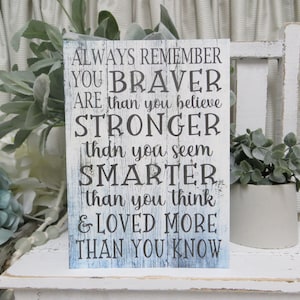 ALWAYS REMEMBER
YOU ARE BRAVER
than you believe
STRONGER
than you seem
SMARTER
than you think
& LOVED MORE
THAN YOU KNOW